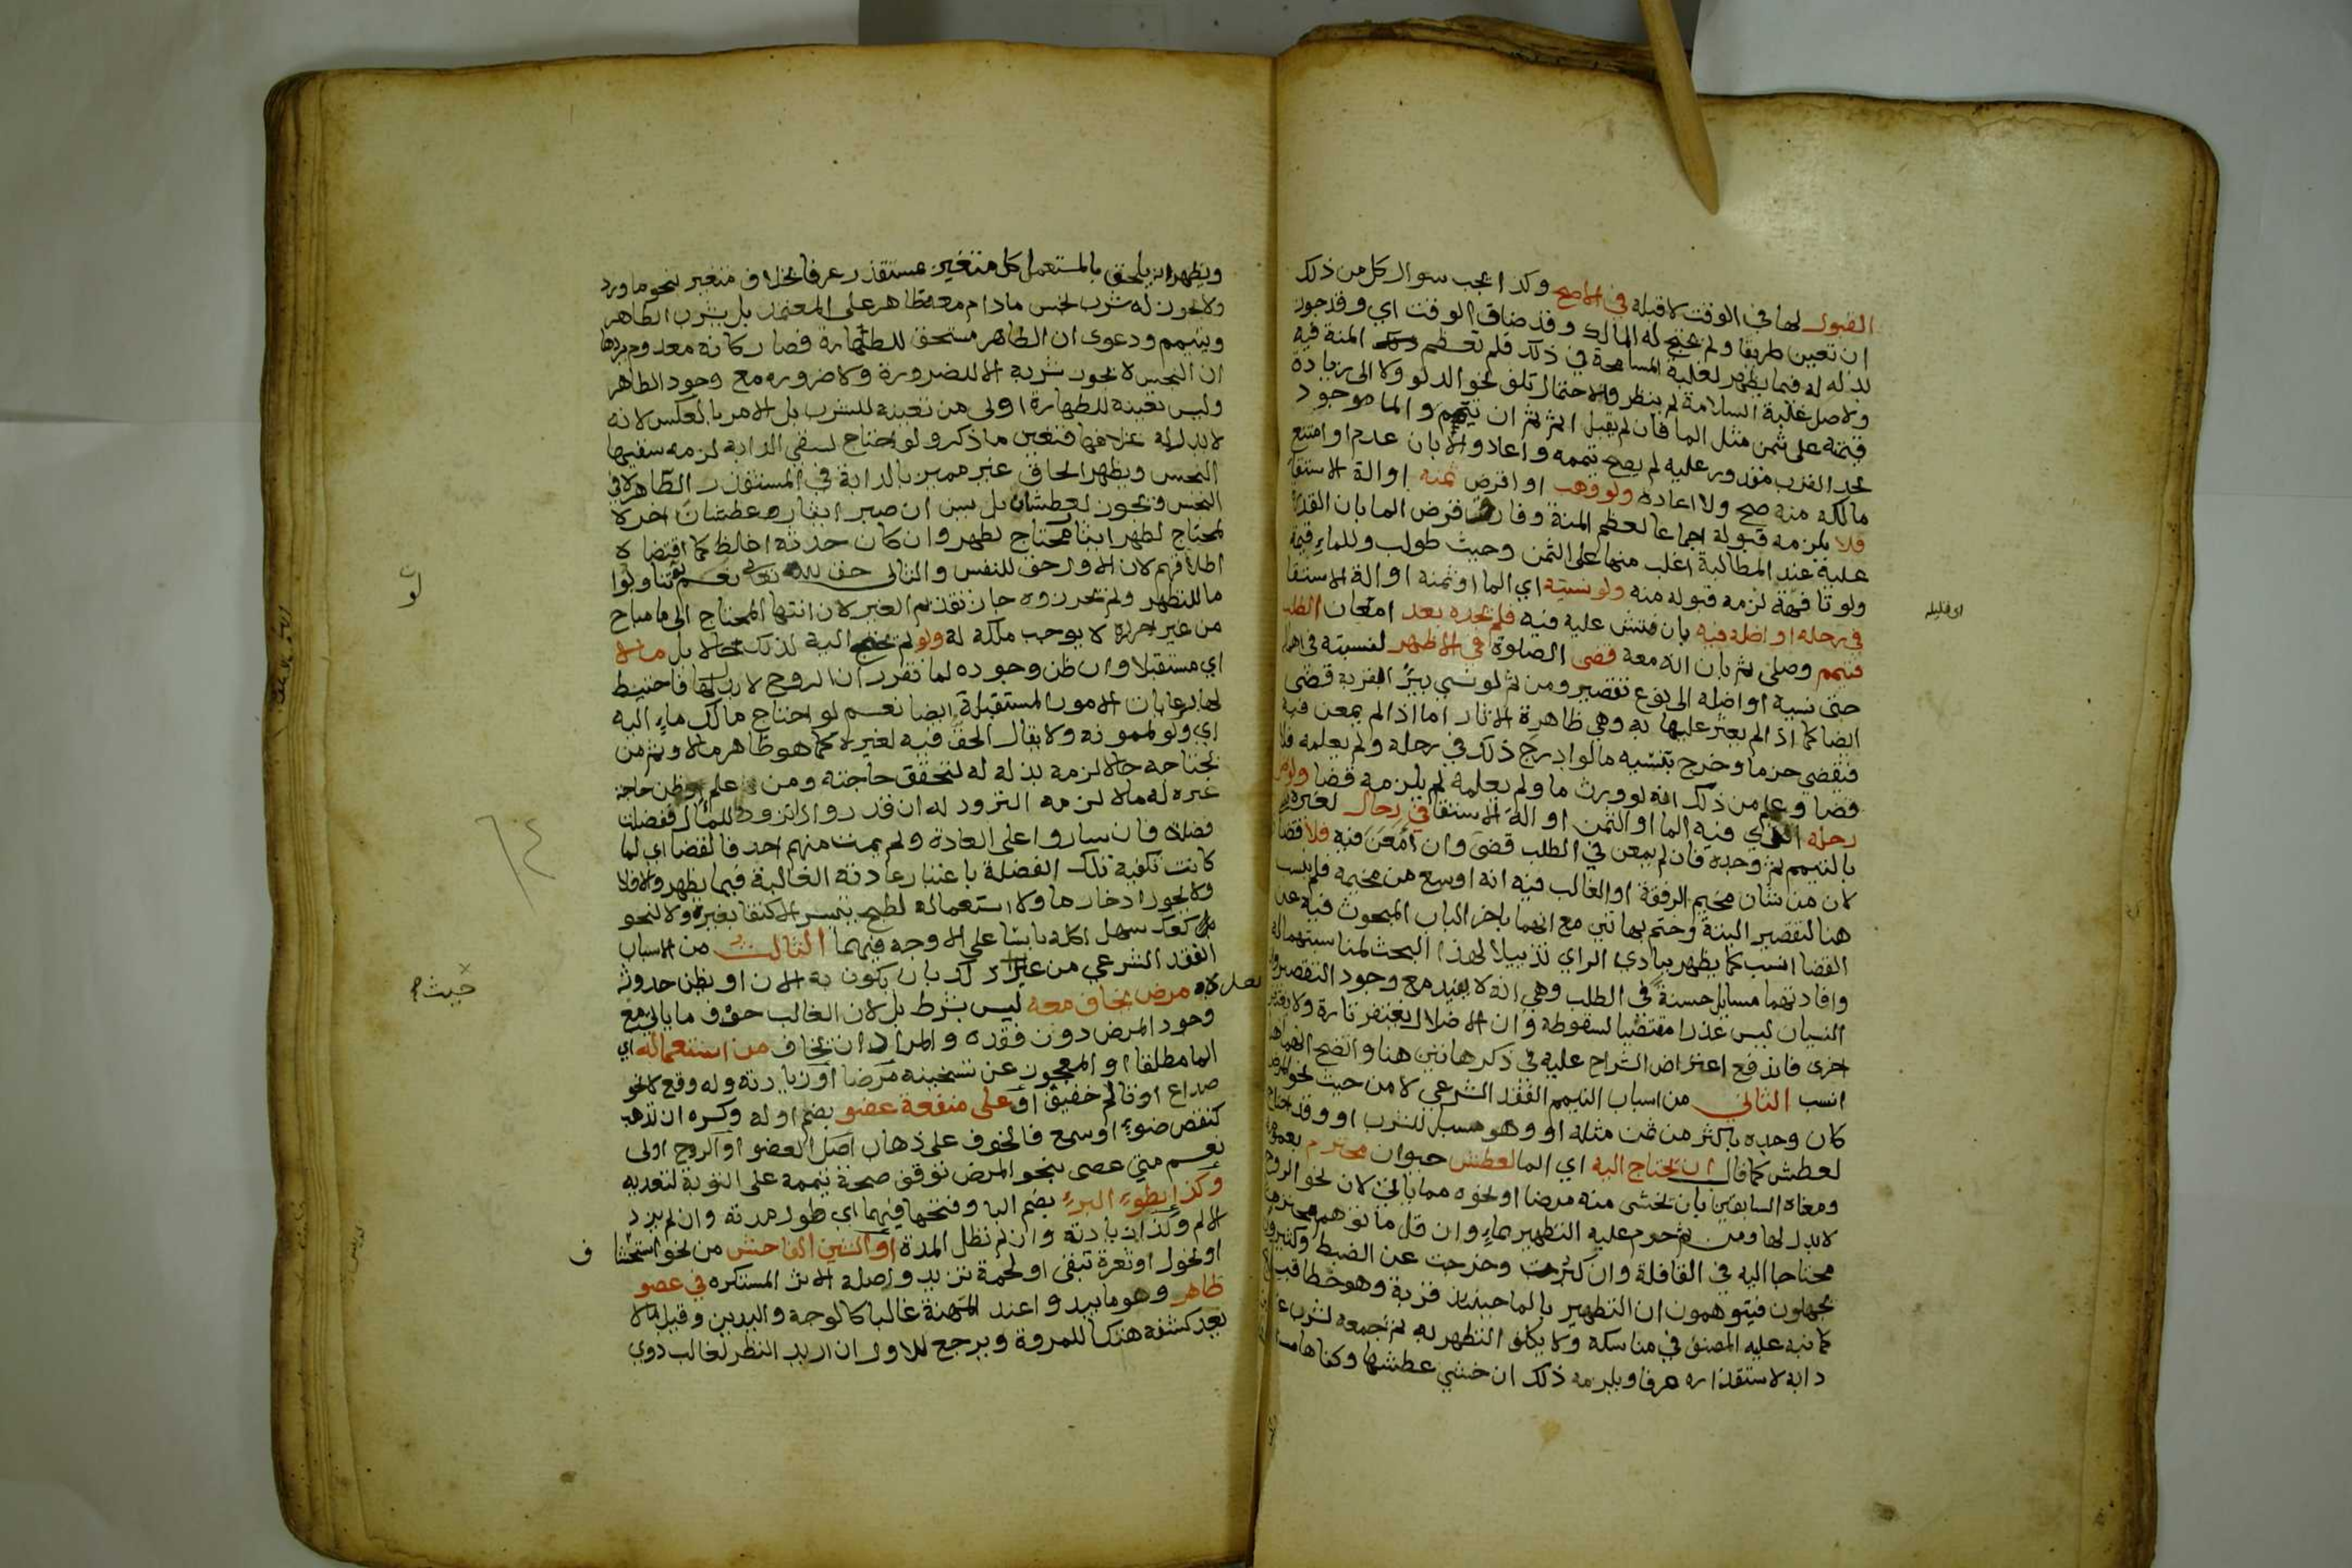 القبول لها في الوقت لا قبله في الاصح وكذا يجب سوال كل من ذلك
ان تعين طريقا ولم يحتج له المالك وقد ضاق الوقت اي وقد جوز
بذله له فيما يظهر لغلبة المسامحة في ذلك فلم تعظم المنة فيه
ولاصل غلبة السلامة لم ينظر والاحتمال تلف نحو الدلو ولا الى زيادة
قيمته على ثمن مثل الما فان لم يقبل اثم ثم ان تيمم والما موجود
بحد القرب مقدور عليه لم يصح تيممه واعاد والا بان عدم او امتنع
مالكه منه صح ولا اعادة ولو وهب او اقرض ثمنه او الة الاستقا
فلا يلزمه قبوله اجماعا لعظم المنة وفارق قرض الما بان القدرة
عليه عند المطالبة اغلب منها على الثمن وحيث طولب وللماء قيمة
ولو تافهة لزمه قبوله منه ولو نسيه اي الما او ثمنه او الة الاستقا
في رحله او اضله فيه بان فتش عليه فيه فلم يجده بعد امعان الطلب
فتيمم وصلى ثم بان انه معه قضى الصلوة في الاظهر لنسبته في اهما
حتى نسيه او اضله الى نوع تقصير ومن ثم لو نسي بئر القرية قضى
ايضا كما اذا لم يعثر عليها به وهي ظاهرة الاثار اما اذا لم يمعن فيه
فيقضي جزما وخرج بنسيه ما لو ادرج ذلك في رحله ولم يعلمه فلا
قضا وعلم من ذلك انه لو ورث ما ولم يعلمه لم يلزمه قضا ولو اضل
رحله الذي فيه الما او الثمن او الة الاستقا في رحال لغيره
بالتيمم ثم وجده فان لم يمعن في الطلب قضى وان امعن فيه فلا قضا
لان من شان مخيم الرفقة او الغالب فيه انه اوسع من مخيمه فلم ينسب
هنا لتقصير البتة وختم بهاتين مع انهما باخر الباب المبحوث فيه عن
القضا انسب كما يظهر ببادي الراي تذييلا لهذا البحث لمناسبتهما له
وافادتهما مسايل حسنة في الطلب وهي انه لا يفيد مع وجود التقصير وان
النسيان ليس عذرا مقتضيا لسقوطه وان الاضلال يغتفر تارة ولا يغتفر
اخرى فاندفع اعتراض الشراح عليه في ذكر هاتين هنا واتضح انهما هنا
انسب الثاني من اسباب التيمم الفقد الشرعي لا من حيث نحو المرض
كان وجده باكثر من ثمن مثله او وهو مسبل للشرب او وقد احتاج
لعطش كما قال ان يحتاج اليه اي الما لعطش حيوان محترم بعمومه
ومعناه السابقين بان يخشى منه مرضا او نحوه مما ياتي لان نحو الروح
لا بدل لها ومن ثم حرم عليه التطهير بماء وان قل ما توهم محترما
محتاجا اليه في القافلة وان كثرت وخرجت عن الضبط وكثيرون
يجهلون فيتوهمون ان التطهير بالما حينئذ قربة وهو خطا قبيح
كما نبه عليه المصنف في مناسكه ولا يكلف التطهر به ثم جمعه لشرب غير
دابة لاستقذاره عرفا ويلزمه ذلك ان خشي عطشها وكفاها ما
او قليله
ويظهر انه يلحق بالمستعمل كل متغير مستقذر عرفا بخلاف متغير بنحو ما ورد
ولا يجوز له شرب نجس ما دام معه طاهر على المعتمد بل يشرب الطاهر
ويتيمم ودعوى ان الطاهر مستحق للطهارة فصار كانه معدوم يردها
ان النجس لا يجوز شربه الا للضرورة ولا ضرورة مع وجود الطاهر
وليس تعينه للطهارة اولى من تعينه للشرب بل الامر بالعكس لانه
لا بدل له بخلافها فتعين ما ذكر ولو احتاج لسقي الدابة لزمه سقيها
النجس ويظهر الحاق غير مميز بالدابة في المستقذر الطاهر لا في
النجس ويجوز لعطشان بل يسن ان صبر ايثاره عطشان اخر لا
لمحتاج لطهر ايثار محتاج لطهر وان كان حدثه اغلظ كما اقتضاه
اطلاقهم لان الاول حق للنفس والثاني حق لله تعالى نعم لو تناوبوا
ما للتطهر ولم يحرزوه جاز تقديم الغير لان انتها المحتاج الى ما مباح
من غير احرازه لا يوجب ملكه له ولو لم يحتج اليه لذلك حالا بل مآلا
اي مستقبلا وان ظن وجوده لما تقرر ان الروح لا بدل لها فاحتيط
لها برعايات الامور المستقبلة ايضا نعم لو احتاج مالك ماء اليه
اي ولو لممونه ولا يقال الحق فيه لغيره كما هو ظاهر مآلا وثم من
يحتاجه حالا لزمه بذله له لتحقق حاجته ومن علم او ظن حاجة
غيره له مآلا لزمه التزود له ان قدر واذا تزود للمآل ففضلت
فضلة فان ساروا على العادة ولم يمت منهم احد فالقضا اي لما
كانت تكفيه تلك الفضلة باعتبار عادته الغالبة فيما يظهر والا فلا
ولا يجوز ادخار ما ولا استعماله لطبخ يتيسر الاكتفا بغيره ولا لنحو
بل كعك سهل اكله يابسا على الاوجه فيهما الثالث من الاسباب
الفقد الشرعي من غير ذلك بان يكون به الان او يظن حدوثه
مرض يخاف معه ليس بشرط بل لان الغالب خوف ما ياتي مع
وجود المرض دون فقده والمراد ان يخاف من استعماله اي
الما مطلقا او المعجوز عن تسخينه مرضا او زيادته وله وقع لا نحو
صداع او تالم خفيف او على منفعة عضو بضم اوله وكسره ان تذهب
كنقص ضوء او سمع فالخوف على ذهاب اصل العضو او الروح اولى
نعم متى عصى بنحو المرض توقف صحة تيممه على التوبة لتعديه
وكذا بطوء البرء بضم البا وفتحها فيهما اي طول مدته وان لم يزد
الالم وكذا زيادته وان لم تطل المدة او الشين الفاحش من نحو استحشا ف
او نحول او ثغرة تبقى او لحمة تزيد واصله الاثر المستكره في عضو
ظاهر وهو ما يبدو عند المهنة غالبا كالوجه واليدين وقيل ما لا
يعد كشفه هتكا للمروة ويرجع للاول ان اريد النظر لغالب ذوي
حيث
٦٤